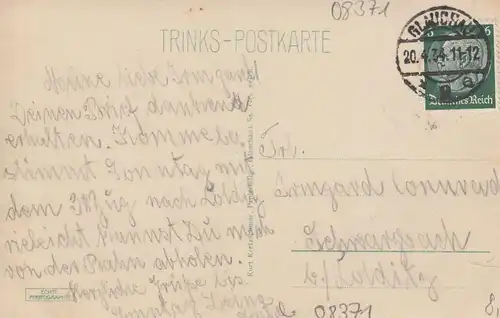 08371
TRINKS-POSTKARTE
GLAUCHAU
20.4.34.11-12
6
6
Deutsches Reich
Meine liebe Irmgard!
Deinen Brief dankend
erhalten. Komme be-
stimmt Sonntag mit
dem Zug nach Colditz
vielleicht kannst Du mich
von der Bahn abholen.
Herzliche Grüße bis
Sonntag Deine
Frl.
Irmgard
Schwarzbach
b/Colditz
ECHTE
PHOTOGRAPHIE
08371
8,